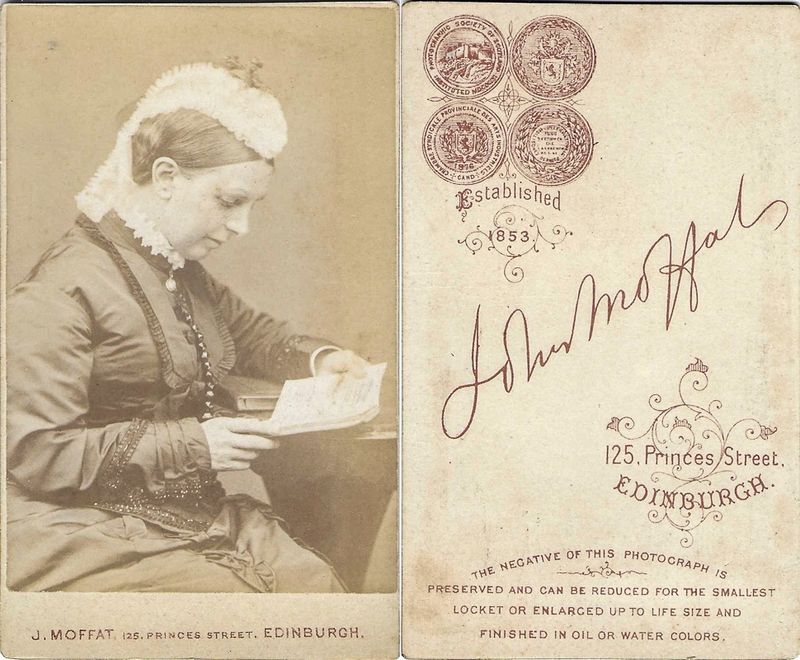 J. MOFFAT, 125, PRINCES STREET, EDINBURGH.
PHOTOGRAPHIC SOCIETY OF SCOTLAND
CHAMBRE SYNDICALE PROVINCIALE DES ARTS INDUSTRIELS
1876
GAND
Established
1853.
John Moffat
125, Princes Street,
EDINBURGH.
THE NEGATIVE OF THIS PHOTOGRAPH IS
PRESERVED AND CAN BE REDUCED FOR THE SMALLEST
LOCKET OR ENLARGED UP TO LIFE SIZE AND
FINISHED IN OIL OR WATER COLORS.